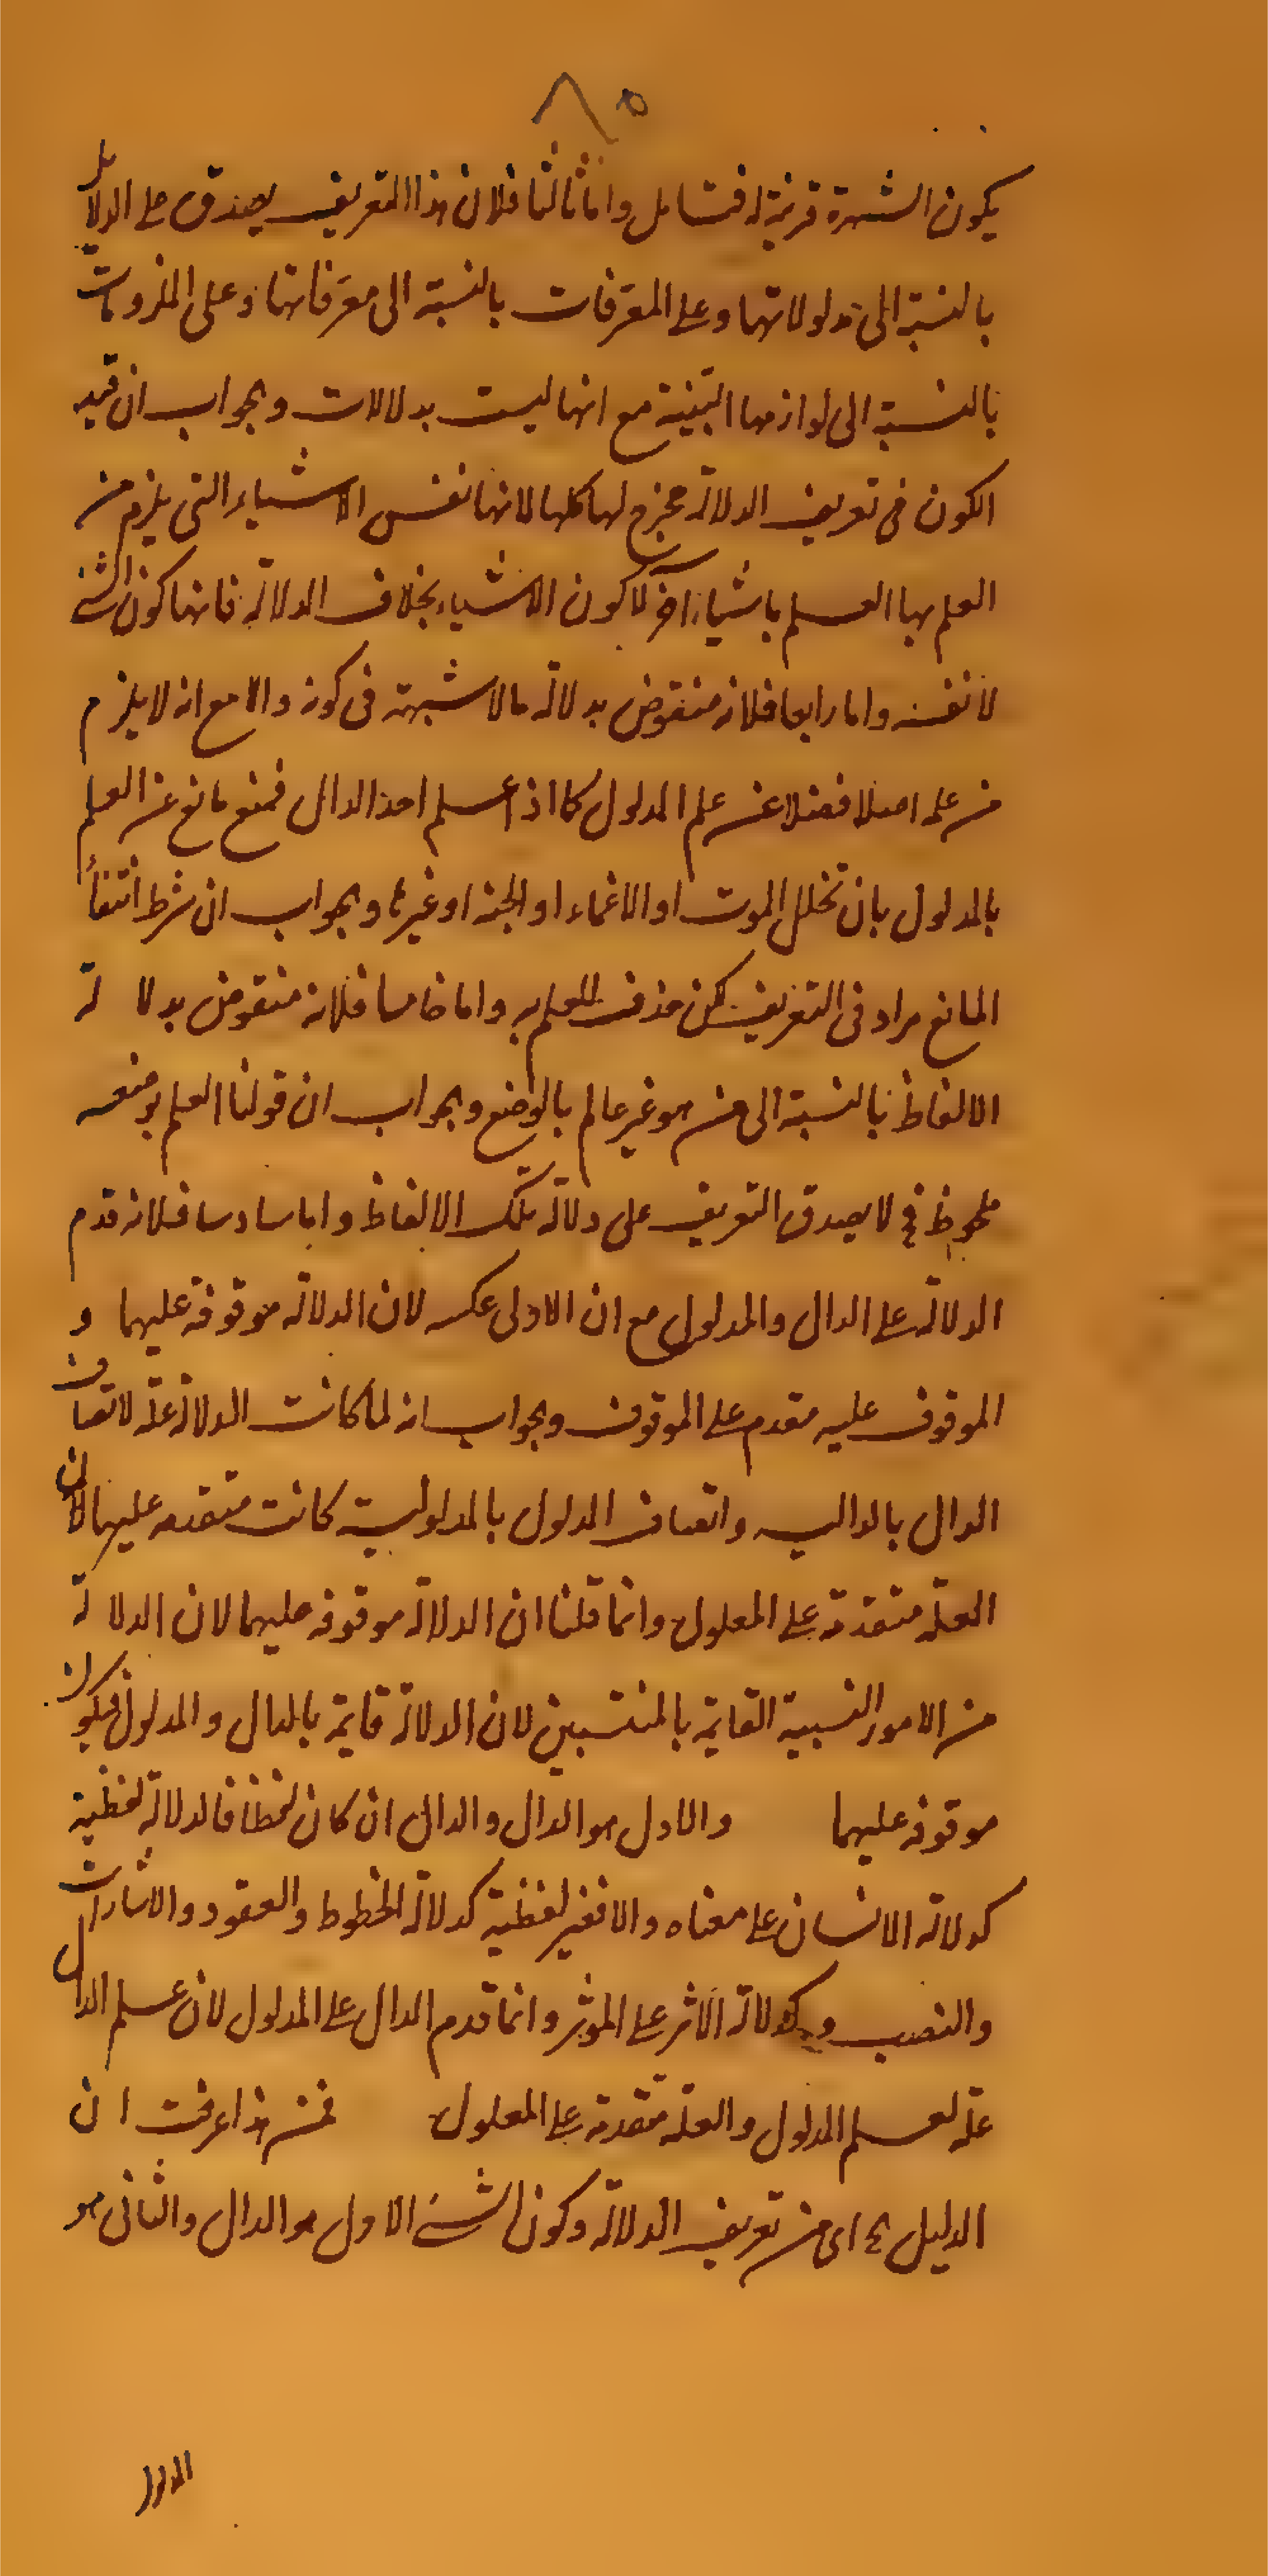 ٨٥
يكون الشهرة قرينة له فتامل واما ثالثا فلان هذا التعريف يصدق على الدلايل
بالنسبة الى مدلولاتها وعلى المعرفات بالنسبة الى معرفاتها وعلى الملزومات
بالنسبة الى لوازمها البينية مع انها ليست بدلالات وبجواب ان قيد
الكون فى تعريف الدلالة مخرج لها كلها لانها نفس الاشياء التى يلزم من
العلم بها العلم باشياء آخر لا كون الاشياء بخلاف الدلالة فانها كون الشئ
لا نفسه واما رابعا فلانه منقوض بدلالة ما لا شبهة فى كونه دالا مع انه لا يلزم
من علمه اصلا فضلا عن علم المدلول كما اذا علم احد الدال فمنع مانع عن العلم
بالمدلول بان تخلل الموت او الاغماء او الجنة او غيرها وبجواب ان شرط انتفأ
المانع مراد فى التعريف لكن حذف للعلم به واما خامسا فلانه منقوض بدلالة
الالفاظ بالنسبة الى من هو غير عالم بالوضع وبجواب ان قولنا العلم بوضعه
ملحوظ فيه لا يصدق التعريف على دلالة تلك الالفاظ واما سادسا فلانه قدم
الدلالة على الدال والمدلول مع ان الاولى عكسه لان الدلالة موقوفة عليهما و
الموقوف عليه مقدم على الموقوف وبجواب انه لما كانت الدلالة علة لاتصاف
الدال بالدالية واتصاف المدلول بالمدلولية كانت متقدمه عليهما لان
العلة متقدمة على المعلول وانما قلنا ان الدلالة موقوفه عليهما لان الدلالة
من الامور النسبية القايمة بالمنتسبين لان الدلالة قايمة بالدال والمدلول فيكون
موقوفه عليهما والاول هو الدال والدال ان كان لفظا فالدلالة لفظية
كدلالة الانسان على معناه والا فغير لفظية كدلالة الخطوط والعقود والاشارات
والنصب وكدلالة الاثر على الموثر وانما قدم الدال على المدلول لان علم الدال
علة لعلم المدلول والعلة متقدمة على المعلول فمن هذا عرفت ان
الدليل ح اى من تعريف الدلالة وكون الشئ الاول هو الدال والثانى هو